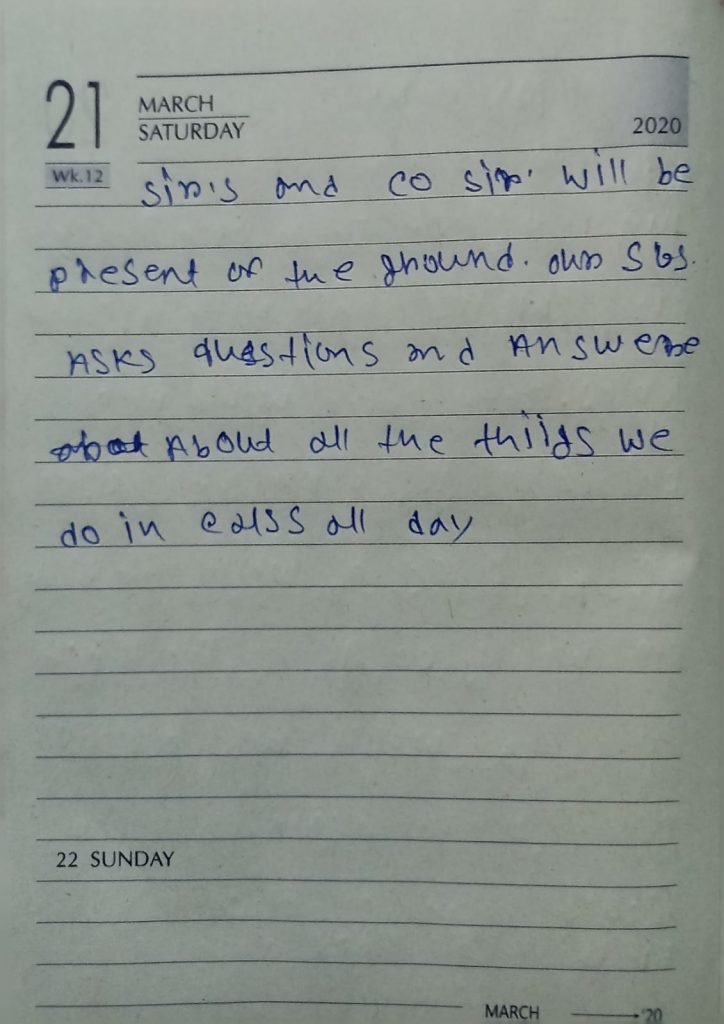 21 MARCH
SATURDAY 2020
Wk.12
sir's and co sir. will be
present or the ground. our Sbs.
ASKS questions and Answere
About all the thiids we
do in class all day
22 SUNDAY
MARCH '20